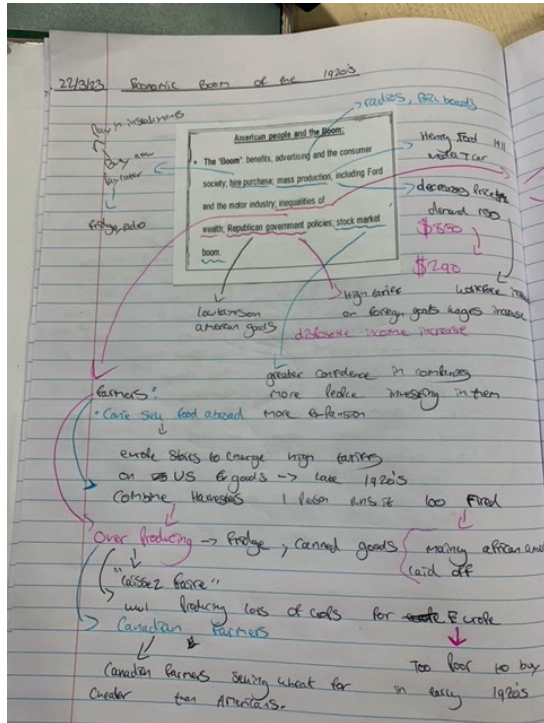 22/3/23 Economic Boom of the 1920's
radios, Billboards
Pay in installments
buy now
pay later
fridge, radio
American people and the Boom:
• The 'Boom': benefits, advertising and the consumer
society; hire purchase; mass production, including Ford
and the motor industry; inequalities of
wealth; Republican government policies; stock market
boom.
Henry Ford 1911
model T car
decreased Price
demand rise
$850
$290
workforce
low tax on
american goods
High tarifs
on foreign goods wages increase
disposable income increase
greater confidence in companies
more People investing in them
more Expansion
farmers:
• Can't sell food abroad
europe starts to charge high tarifs
on US goods → late 1920's
Combine Harvesters 1 Person runs it 100 Fired
Over Producing → fridge, canned goods
mainly african am
laid off
"laissez faire"
ww1 Producing lots of crops for Europe
Canadian Farmers
Canadian farmers selling wheat for
cheaper than Americans.
Too Poor to buy
in early 1920's